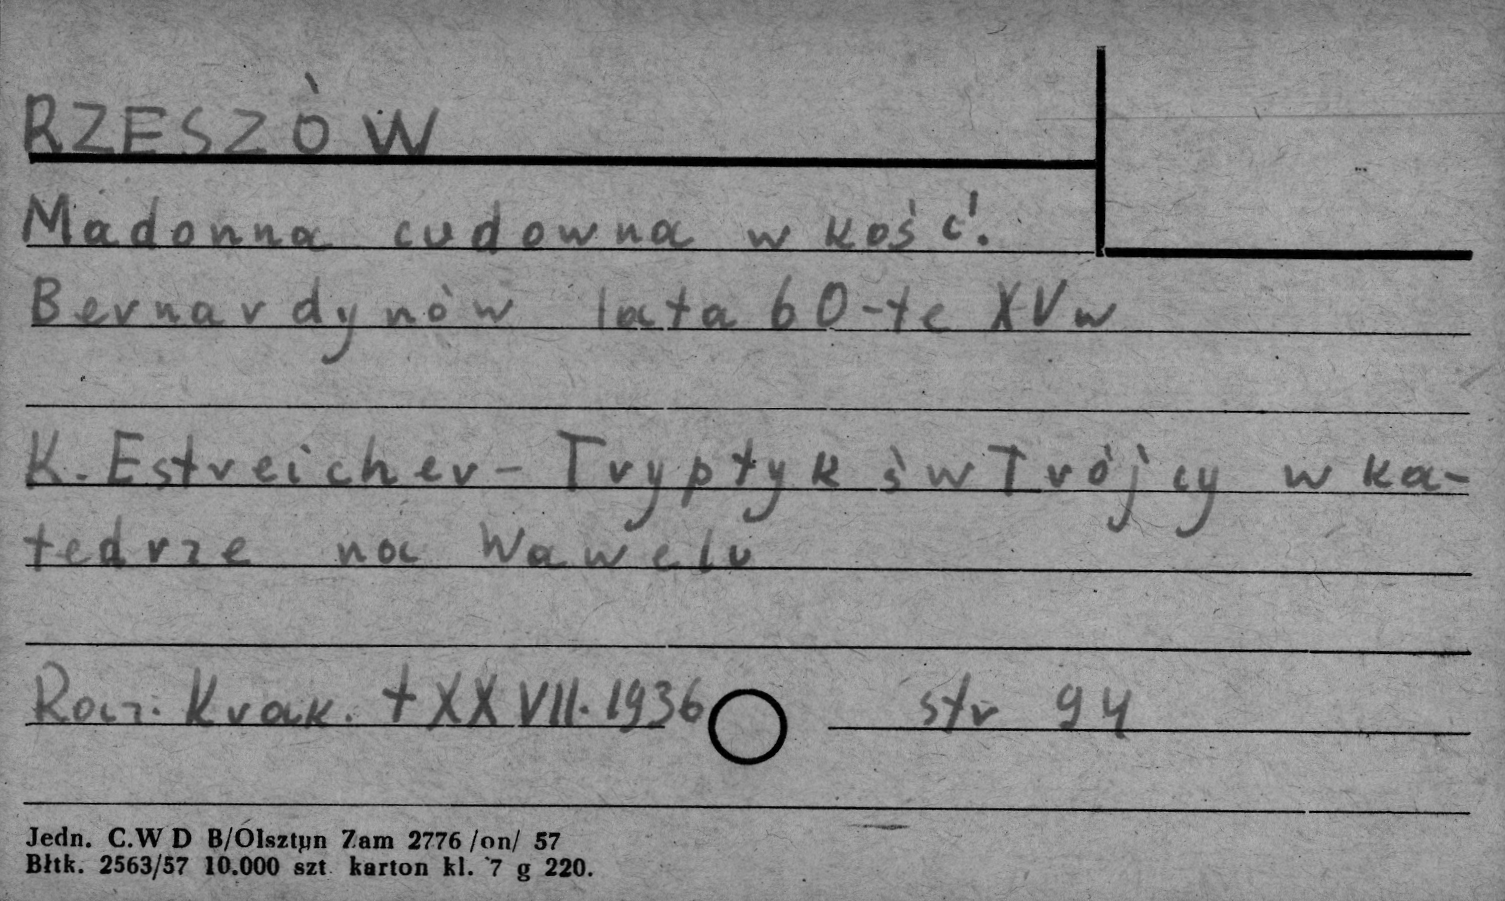 RZESZÓW
Madonna cudowna w kość.
Bernardynów lata 60-te XV w
K. Estreicher - Tryptyk św Trójcy w ka-
tedrze na Wawelu
Rocz. Krak. t XXVII. 1936 str 94
Jedn. C.W D B/Olsztyn Zam 2776 /on/ 57
Błtk. 2563/57 10.000 szt karton kl. 7 g 220.